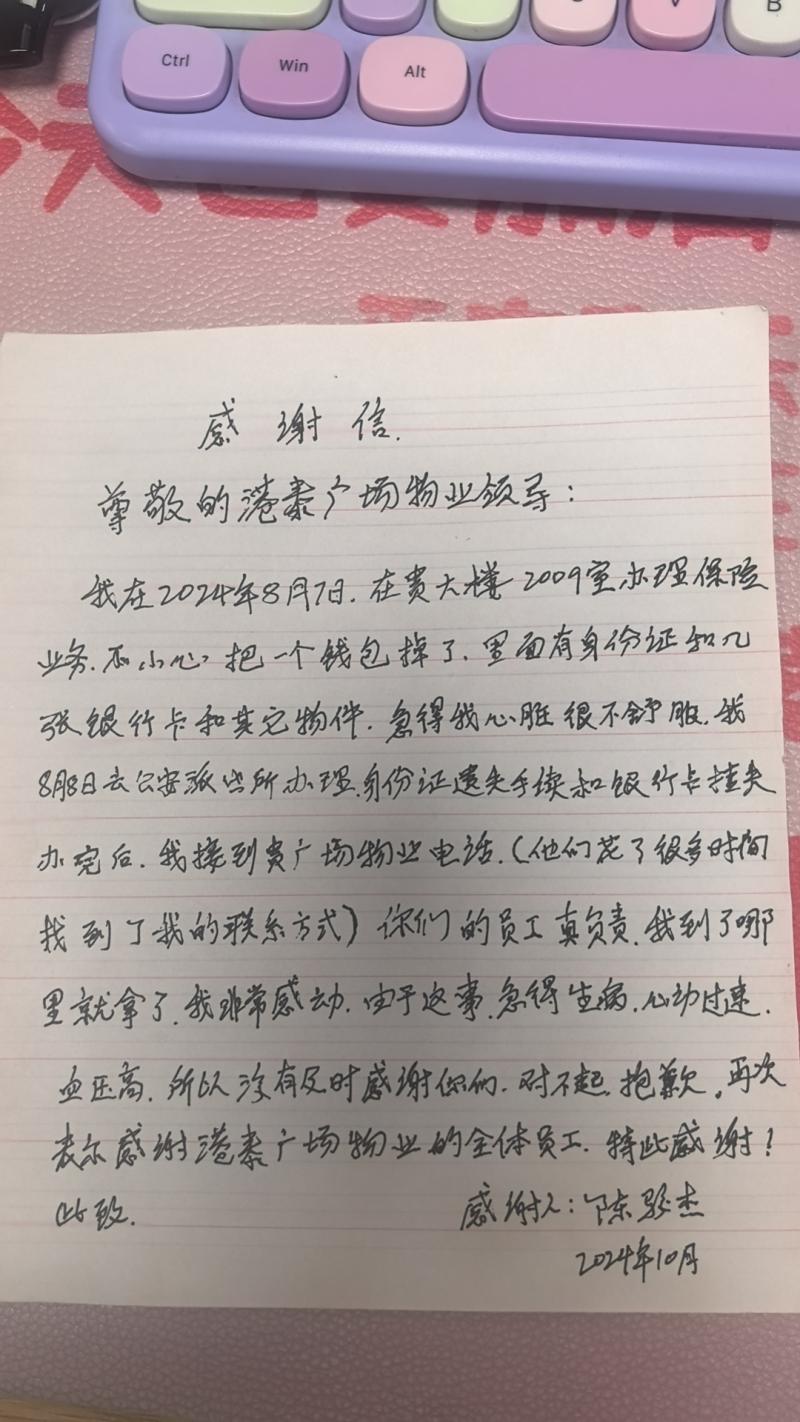 Ctrl Win Alt
C V B
感谢信.
尊敬的港泰广场物业领导：
我在2024年8月7日.在贵大楼2009室办理保险
业务.不小心把一个钱包掉了.里面有身份证和几
张银行卡和其它物件.急得我心脏很不舒服.我
8月8日去公安派出所办理.身份证遗失手续和银行卡挂失
办完后.我接到贵广场物业电话.(他们花了很多时间
找到了我的联系方式)你们的员工真负责.我到了哪
里就拿了.我非常感动.由于这事.急得生病.心动过速.
血压高.所以没有及时感谢你们.对不起.抱歉。再次
表示感谢港泰广场物业的全体员工.特此感谢！
此致.
感谢人：陈 杰
2024年10月